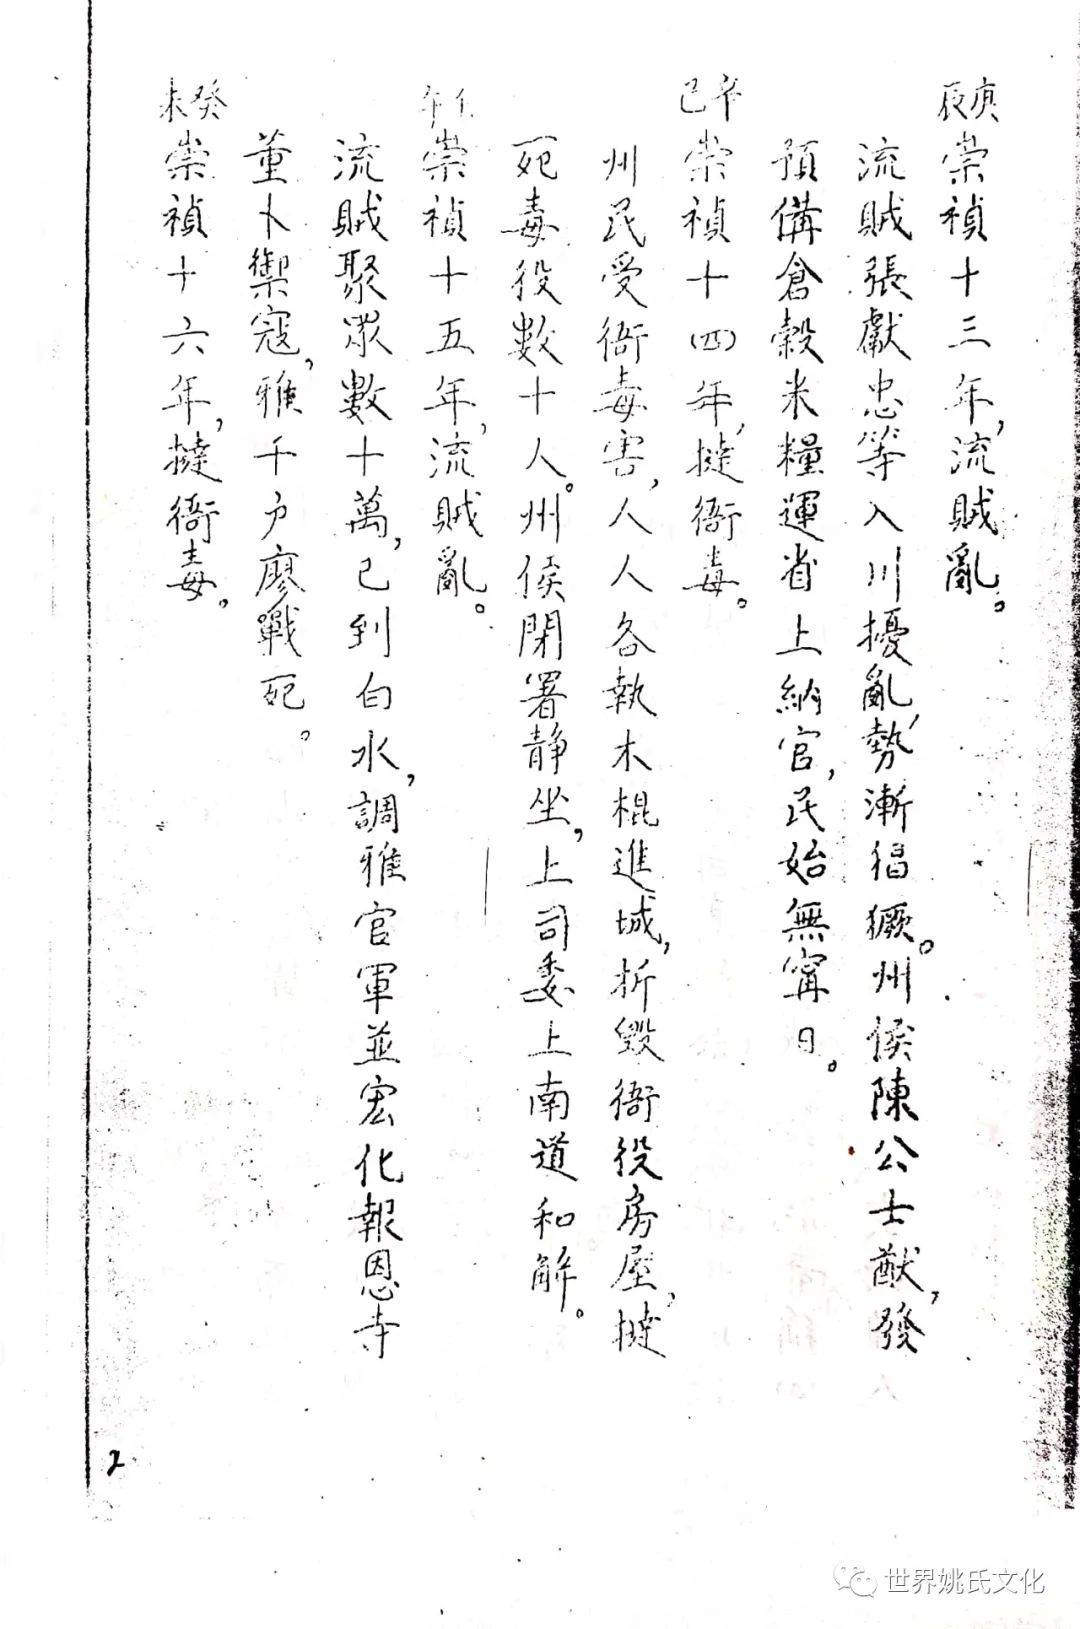 庚辰崇禎十三年,流賊亂。
流賊張獻忠等入川擾亂,勢漸猖獗。州侯陳公士猷,發
預備倉穀米糧運省上納官,民始無寗日。
辛巳崇禎十四年,撻衙毒。
州民受衙毒害,人人各執木棍進城,折毀衙役房屋,撻
死毒役數十人。州侯閉署静坐,上司委上南道和解。
壬午崇禎十五年,流賊亂。
流賊聚眾數十萬,已到白水,調雅官軍並宏化報恩寺
董卜禦寇,雅千户廖戰死。
癸未崇禎十六年,撻衙毒。
2
世界姚氏文化